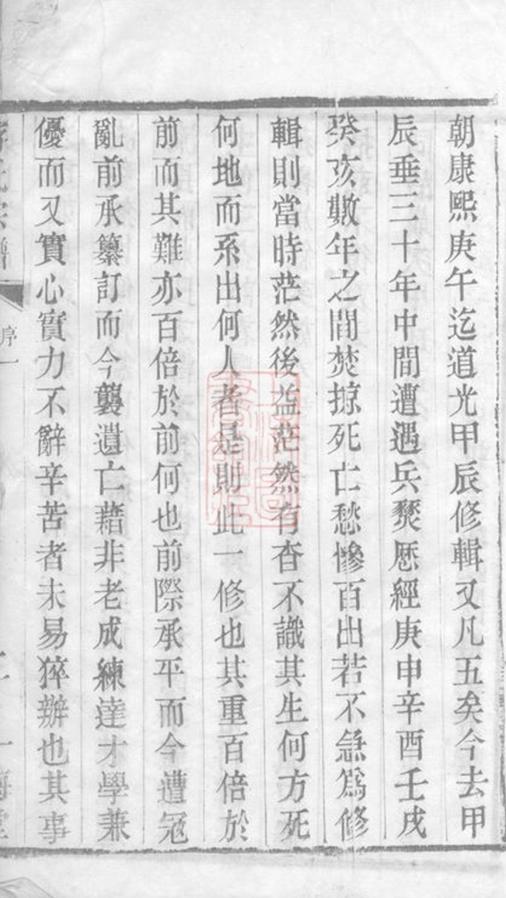 朝康熙庚午迄道光甲辰修輯又凡五矣今去甲
辰垂三十年中間遭遇兵燹歷經庚申辛酉壬戌
癸亥數年之間焚掠死亡愁慘百出若不急為修
輯則當時茫然後益茫然有杳不識其生何方死
何地而系出何人者是則此一修也其重百倍於
前而其難亦百倍於前何也前際承平而今遭寇
亂前承纂訂而今襲遺亡藉非老成練達才學兼
優而又實心實力不辭辛苦者未易猝辦也其事
氏宗譜
序一